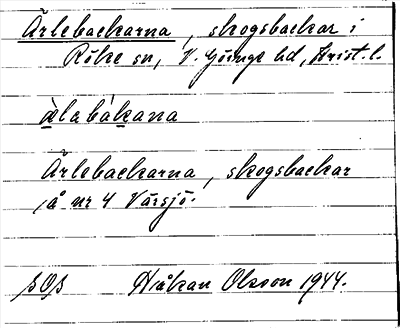 Ärlebackarna, skogsbackar i
Röke sn, V. Göinge hd, Krist. l.
àlabákana
Ärlebackarna, skogsbackar
å nr 4 Värsjö.
SOS Håkan Olsson 1944.